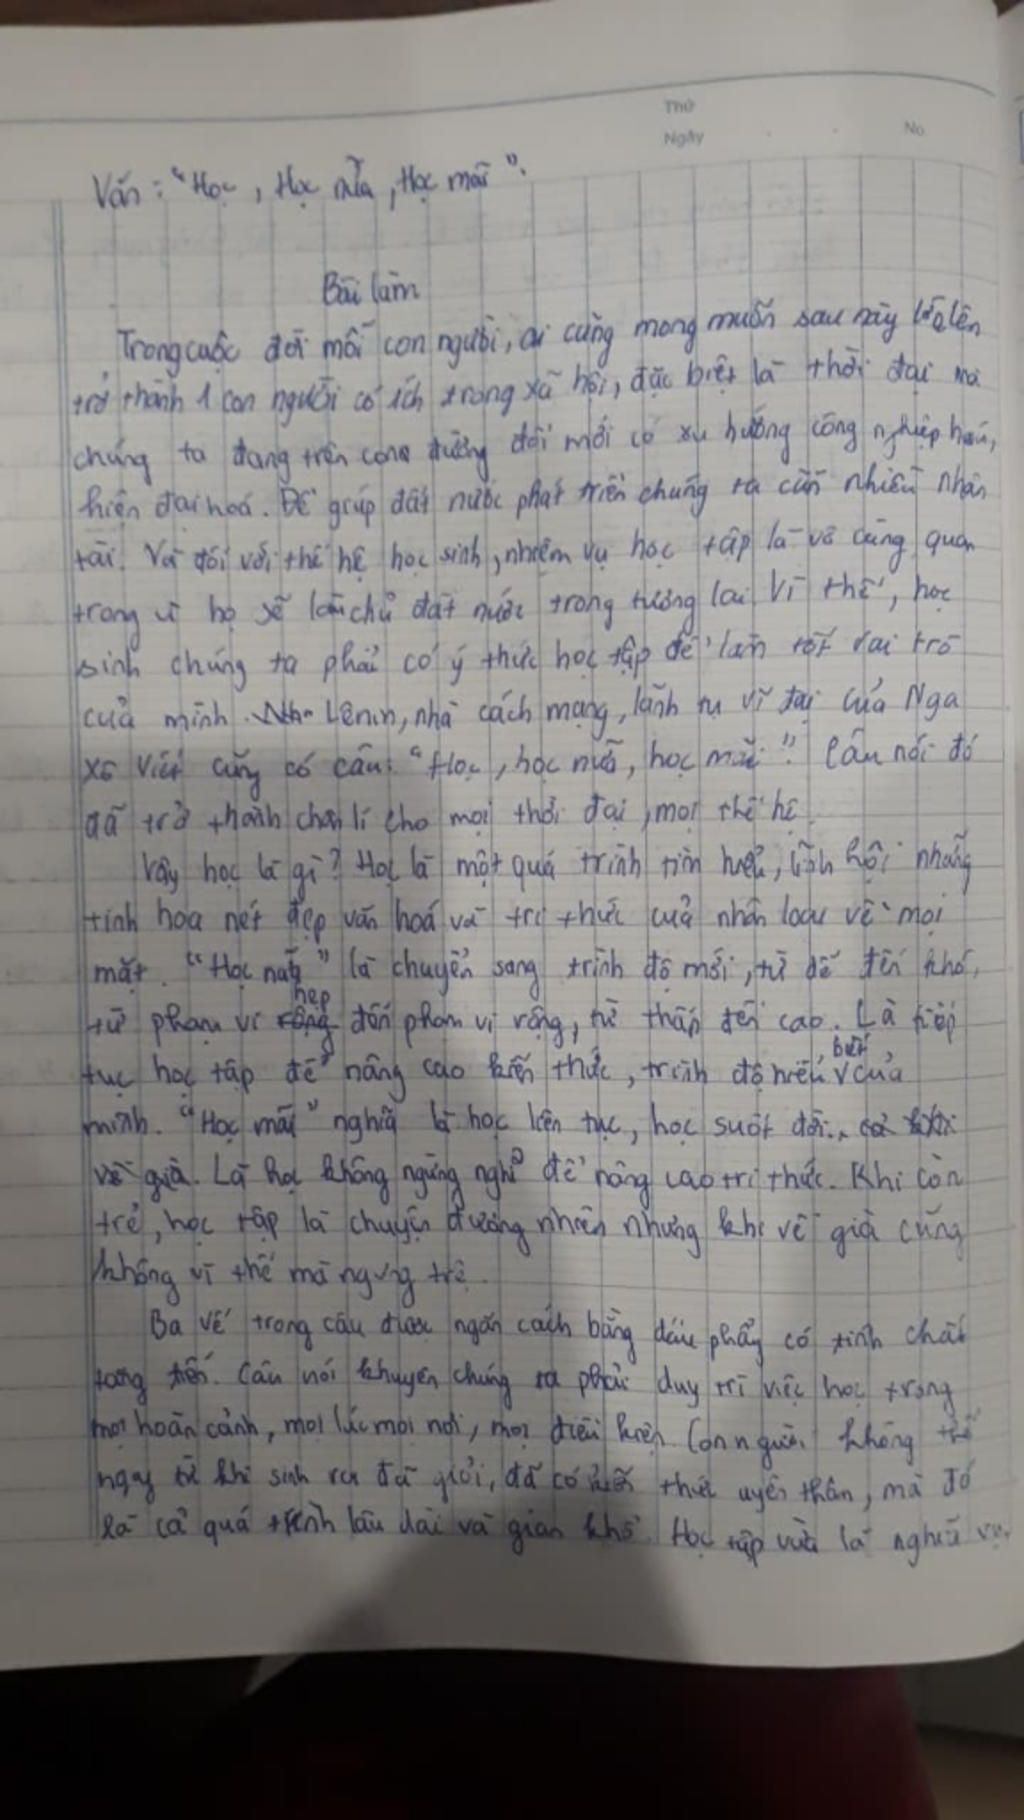 Thứ
Ngày No
Văn: "Học, Học nữa, Học mãi".
Bài làm
Trong cuộc đời mỗi con người, ai cũng mong muốn sau này lớn lên
trở thành 1 con người có ích trong xã hội, đặc biệt là thời đại mà
chúng ta đang trên con đường đổi mới có xu hướng công nghiệp hoá,
hiện đại hoá. Để giúp đất nước phát triển chúng ta cần nhiều nhân
tài. Và đối với thế hệ học sinh, nhiệm vụ học tập là vô cùng quan
trong vì họ sẽ làm chủ đất nước trong tương lai. Vì thế, học
sinh chúng ta phải có ý thức học tập để làm tốt vai trò
của mình. Lênin, nhà cách mạng, lãnh tụ vĩ đại của Nga
Xô Viết cũng có câu: "Học, học nữa, học mãi". Câu nói đó
đã trở thành chân lí cho mọi thời đại, mọi thế hệ.
Vậy học là gì? Học là một quá trình tìm hiểu, lĩnh hội những
tinh hoa nét đẹp văn hoá và tri thức của nhân loại về mọi
mặt. "Học nữa" là chuyển sang trình độ mới, từ dễ đến khó,
từ phạm vi hẹp đến phạm vi rộng, từ thấp đến cao. Là tiếp
tục học tập để nâng cao kiến thức, trình độ hiểu biết của
mình. "Học mãi" nghĩa là học liên tục, học suốt đời..
về già. Là học không ngừng nghỉ để nâng cao tri thức. Khi còn
trẻ, học tập là chuyện đương nhiên nhưng khi về già cũng
không vì thế mà ngưng trệ.
Ba vế trong câu được ngăn cách bằng dấu phẩy có tính chất
tăng tiến. Câu nói khuyên chúng ta phải duy trì việc học trong
mọi hoàn cảnh, mọi lúc mọi nơi, mọi điều kiện. Con người không thể
ngay từ khi sinh ra đã giỏi, đã có kiến thức uyên thâm, mà đó
là cả quá trình lâu dài và gian khổ. Học tập vừa là nghĩa vụ